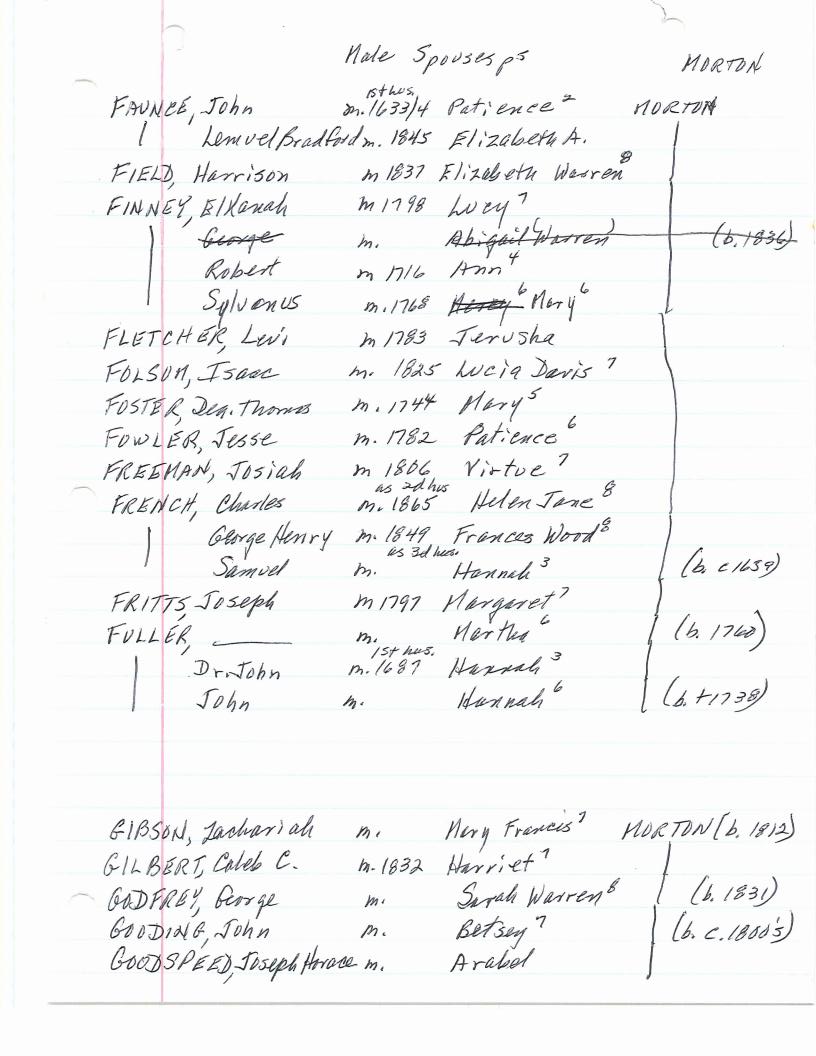 Male Spouses ps MORTON
1st hus.
FAUNCE, John m. 1633/4 Patience² MORTON
Lemuel Bradford m. 1845 Elizabeth A.
FIELD, Harrison m 1837 Elizabeth Warren⁸
FINNEY, Elkanah m 1798 Lucy⁷
George m. Abigail (Warren) (b. 1836)
Robert m 1716 Ann⁴
Sylvanus m. 1768 Mercy⁶ Mary⁶
FLETCHER, Levi m 1783 Jerusha
FOLSOM, Isaac m. 1825 Lucia Davis⁷
FOSTER, Dea. Thomas m. 1744 Mary⁵
FOWLER, Jesse m. 1782 Patience⁶
FREEMAN, Josiah m 1806 Virtue⁷
as 2d hus
FRENCH, Charles m. 1865 Helen Jane⁸
George Henry m. 1849 Frances Wood⁸
as 3d hus.
Samuel m. Hannah³ (b. c 1659)
FRITTS, Joseph m 1797 Margaret⁷
FULLER, ______ m. Martha⁶ (b. 1760)
1st hus.
Dr. John m. 1687 Hannah³
John m. Hannah⁶ (b. + 1738)
GIBSON, Zachariah m. Mary Francis⁷ MORTON (b. 1812)
GILBERT, Caleb C. m. 1832 Harriet⁷
GODFREY, George m. Sarah Warren⁸ (b. 1831)
GOODING, John m. Betsey⁷ (b. c. 1800's)
GOODSPEED, Joseph Horace m. Arabel